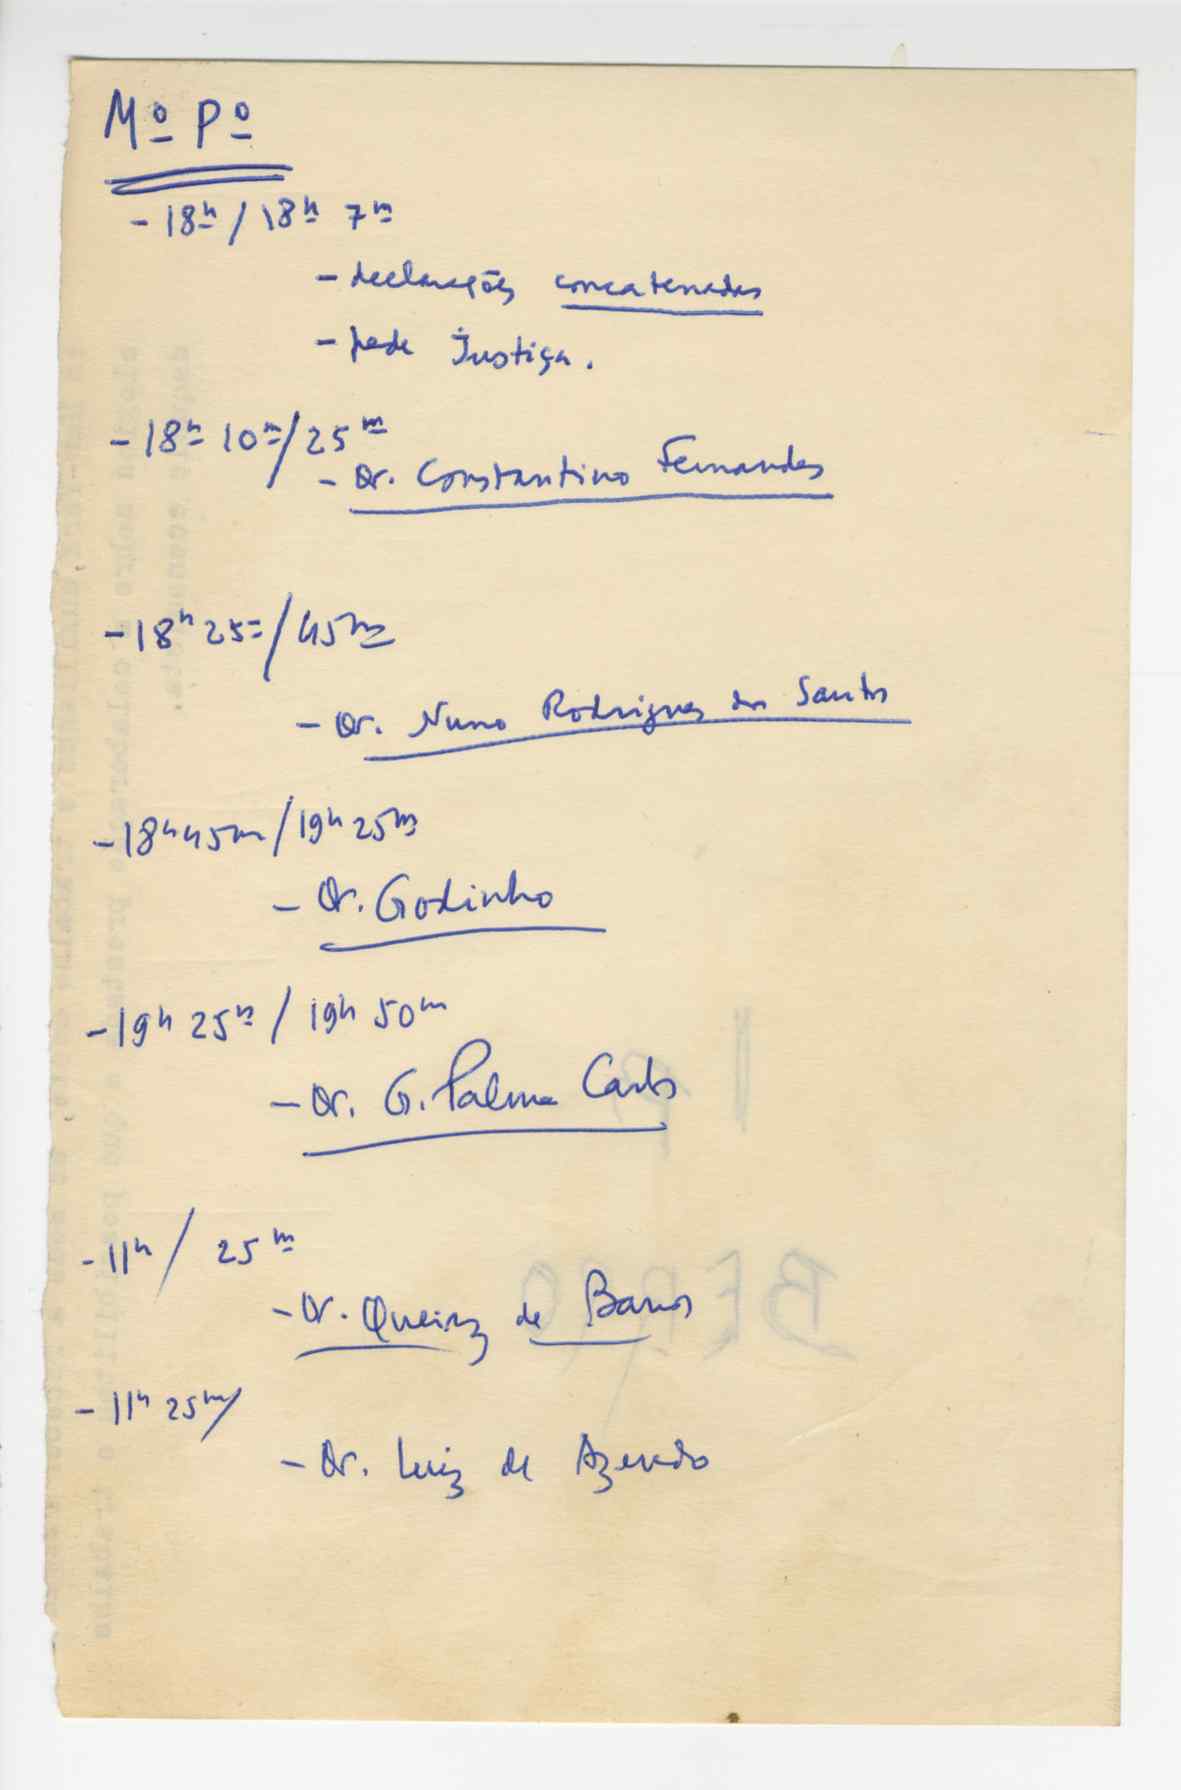 Mº Pº
- 18h / 18h 7m
- declarações concatenadas
- pede Justiça.
- 18h 10m / 25m
- Dr. Constantino Fernandes
- 18h 25m / 45m
- Dr. Nuno Rodrigues dos Santos
- 18h 45m / 19h 25m
- Dr. Godinho
- 19h 25m / 19h 50m
- Dr. G. Palma Carlos
- 11h / 25m
- Dr. Queiroz de Barros
- 11h 25m /
- Dr. Luiz de Azevedo